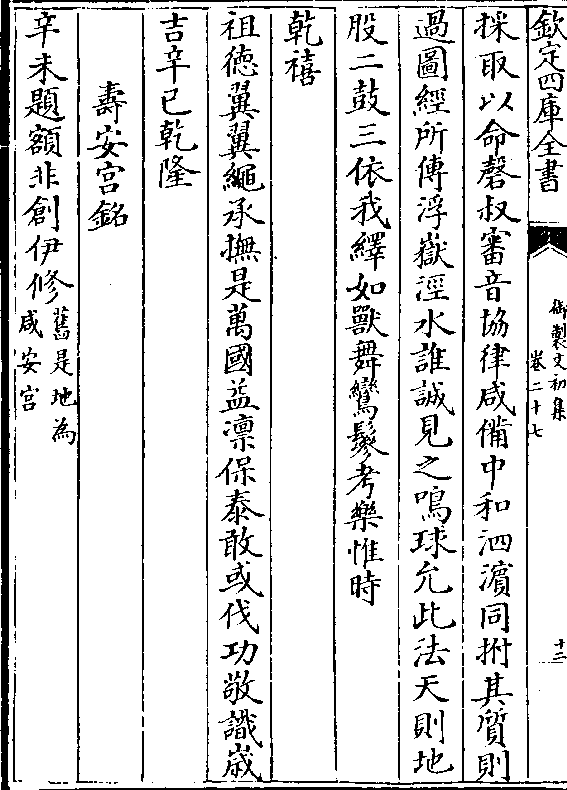 欽定四庫全書
御製文初集
卷二十七
十二
採取以命磬叔審音協律咸備中和泗濵同拊其質則
過圖經所傳浮嶽涇水誰誠見之鳴球允此法天則地
股二鼓三依我繹如獸舞鸞鬖考樂惟時
乾禧
祖德翼翼繩承撫是萬國益凛保泰敢或伐功敬識嵗
吉辛巳乾隆
壽安宫銘
辛未題額非創伊修舊是地為咸安宫